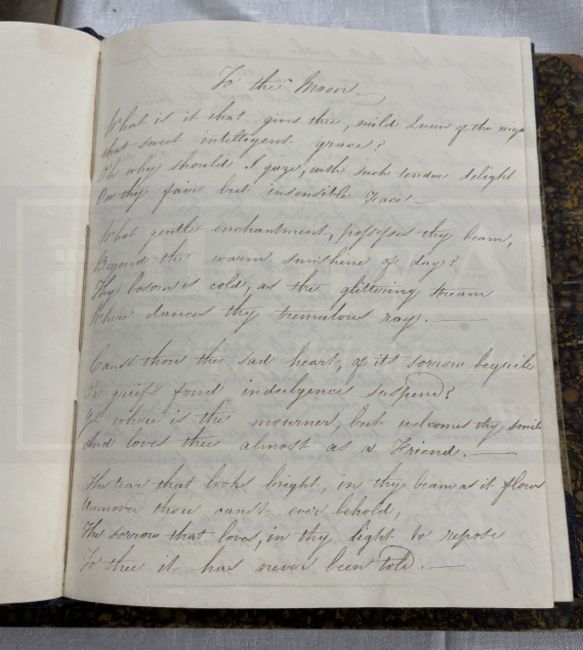 To the Moon
What is it that gives thee, mild Queen of the night
that sweet intelligent grace?
Oh why should I gaze, with such tender delight
On thy fair but insensible Face! —
What gentle enchantment, possesses thy beam,
Beyond the warm sunshine of day?
Thy bosom is cold, as the glittering stream
Where dances thy tremulous ray. —
Canst thou the sad heart, of its sorrow beguile
Or grief's fond indulgence suspend?
Yet where is the mourner, but welcomes thy smile
And loves thee almost as a Friend. —
The tear that looks bright, in thy beam as it flows
Unmoved thou canst ever behold,
The sorrow that loves, in thy light to repose
To thee it has never been told. —